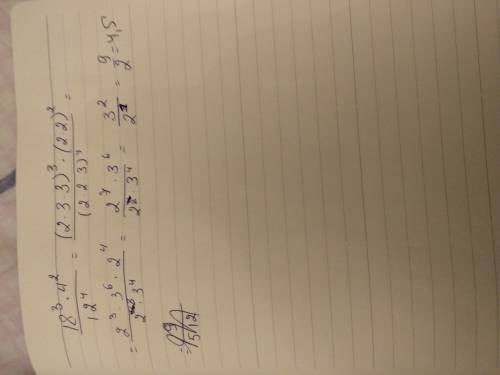 18³·4² / 12⁴ = (2·3·3)³·(2·2)² / (2·2·3)⁴ =
= 2³·3⁶·2⁴ / 2⁸·3⁴ = 2⁷·3⁶ / 2⁸·3⁴ = 3² / 2¹ = 9/2 = 4,5